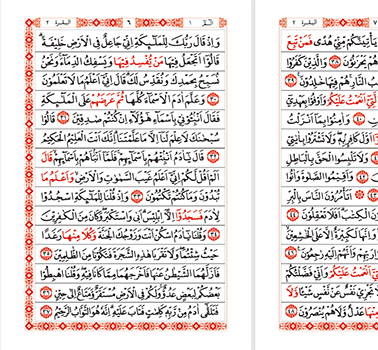 الٓمّٓ ١ ٦ البقرة ٢
وَاِذْ قَالَ رَبُّكَ لِلْمَلٰٓئِكَةِ اِنِّيْ جَاعِلٌ فِي الْاَرْضِ خَلِيْفَةً
قَالُوْٓا اَتَجْعَلُ فِيْهَا مَنْ يُّفْسِدُ فِيْهَا وَيَسْفِكُ الدِّمَآءَ وَنَحْنُ
نُسَبِّحُ بِحَمْدِكَ وَنُقَدِّسُ لَكَ قَالَ اِنِّيْٓ اَعْلَمُ مَا لَا تَعْلَمُوْنَ
٣٠ وَعَلَّمَ اٰدَمَ الْاَسْمَآءَ كُلَّهَا ثُمَّ عَرَضَهُمْ عَلَى الْمَلٰٓئِكَةِ
فَقَالَ اَنْۢبِـُٔوْنِيْ بِاَسْمَآءِ هٰٓؤُلَآءِ اِنْ كُنْتُمْ صٰدِقِيْنَ ٣١ قَالُوْا
سُبْحٰنَكَ لَا عِلْمَ لَنَآ اِلَّا مَا عَلَّمْتَنَا اِنَّكَ اَنْتَ الْعَلِيْمُ الْحَكِيْمُ
٣٢ قَالَ يٰٓاٰدَمُ اَنْۢبِئْهُمْ بِاَسْمَآئِهِمْ فَلَمَّآ اَنْۢبَاَهُمْ بِاَسْمَآئِهِمْ قَالَ
اَلَمْ اَقُلْ لَّكُمْ اِنِّيْٓ اَعْلَمُ غَيْبَ السَّمٰوٰتِ وَالْاَرْضِ وَاَعْلَمُ مَا
تُبْدُوْنَ وَمَا كُنْتُمْ تَكْتُمُوْنَ ٣٣ وَاِذْ قُلْنَا لِلْمَلٰٓئِكَةِ اسْجُدُوْا
لِاٰدَمَ فَسَجَدُوْٓا اِلَّآ اِبْلِيْسَ اَبٰى وَاسْتَكْبَرَ وَكَانَ مِنَ الْكٰفِرِيْنَ
٣٤ وَقُلْنَا يٰٓاٰدَمُ اسْكُنْ اَنْتَ وَزَوْجُكَ الْجَنَّةَ وَكُلَا مِنْهَا رَغَدًا
حَيْثُ شِئْتُمَا وَلَا تَقْرَبَا هٰذِهِ الشَّجَرَةَ فَتَكُوْنَا مِنَ الظّٰلِمِيْنَ ٣٥
فَاَزَلَّهُمَا الشَّيْطٰنُ عَنْهَا فَاَخْرَجَهُمَا مِمَّا كَانَا فِيْهِ وَقُلْنَا اهْبِطُوْا
بَعْضُكُمْ لِبَعْضٍ عَدُوٌّ وَلَكُمْ فِي الْاَرْضِ مُسْتَقَرٌّ وَّمَتَاعٌ اِلٰى حِيْنٍ ٣٦
فَتَلَقّٰٓى اٰدَمُ مِنْ رَّبِّهٖ كَلِمٰتٍ فَتَابَ عَلَيْهِ اِنَّهٗ هُوَ التَّوَّابُ الرَّحِيْمُ ٣٧
٧ البقرة ٢
يَاْتِيَنَّكُمْ مِّنِّيْ هُدًى فَمَنْ تَبِعَ
هُمْ يَحْزَنُوْنَ ٣٨ وَالَّذِيْنَ كَفَرُوْا
النَّارِ هُمْ فِيْهَا خٰلِدُوْنَ ٣٩
اَنْعَمْتُ عَلَيْكُمْ وَاَوْفُوْا بِعَهْدِيْٓ
٤٠ وَاٰمِنُوْا بِمَآ اَنْزَلْتُ
اَوَّلَ كَافِرٍۢ بِهٖ وَلَا تَشْتَرُوْا بِاٰيٰتِيْ
وَلَا تَلْبِسُوا الْحَقَّ بِالْبَاطِلِ
وَاَقِيْمُوا الصَّلٰوةَ وَاٰتُوا
٤٣ اَتَاْمُرُوْنَ النَّاسَ بِالْبِرِّ
الْكِتٰبَ اَفَلَا تَعْقِلُوْنَ ٤٤
وَاِنَّهَا لَكَبِيْرَةٌ اِلَّا عَلَى الْخٰشِعِيْنَ
وَاَنَّهُمْ اِلَيْهِ رٰجِعُوْنَ ٤٦
الَّتِيْٓ اَنْعَمْتُ عَلَيْكُمْ وَاَنِّيْ فَضَّلْتُكُمْ
تَجْزِيْ نَفْسٌ عَنْ نَّفْسٍ شَيْـًٔا وَّلَا
مِنْهَا عَدْلٌ وَّلَا هُمْ يُنْصَرُوْنَ ٤٨